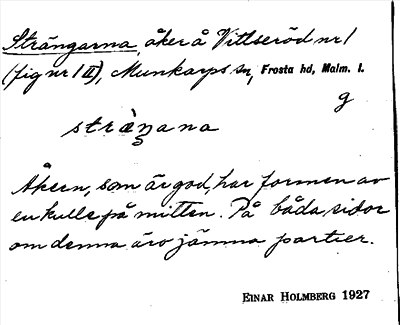 Strängarna, åker å Vittseröd nr 1
(fig nr 1 II), Munkarps sn, Frosta hd, Malm. l.
g
stràŋana
Åkern, som är god, har formen av
en kulle på mitten. På båda sidor
om denna äro jämna partier.
EINAR HOLMBERG 1927